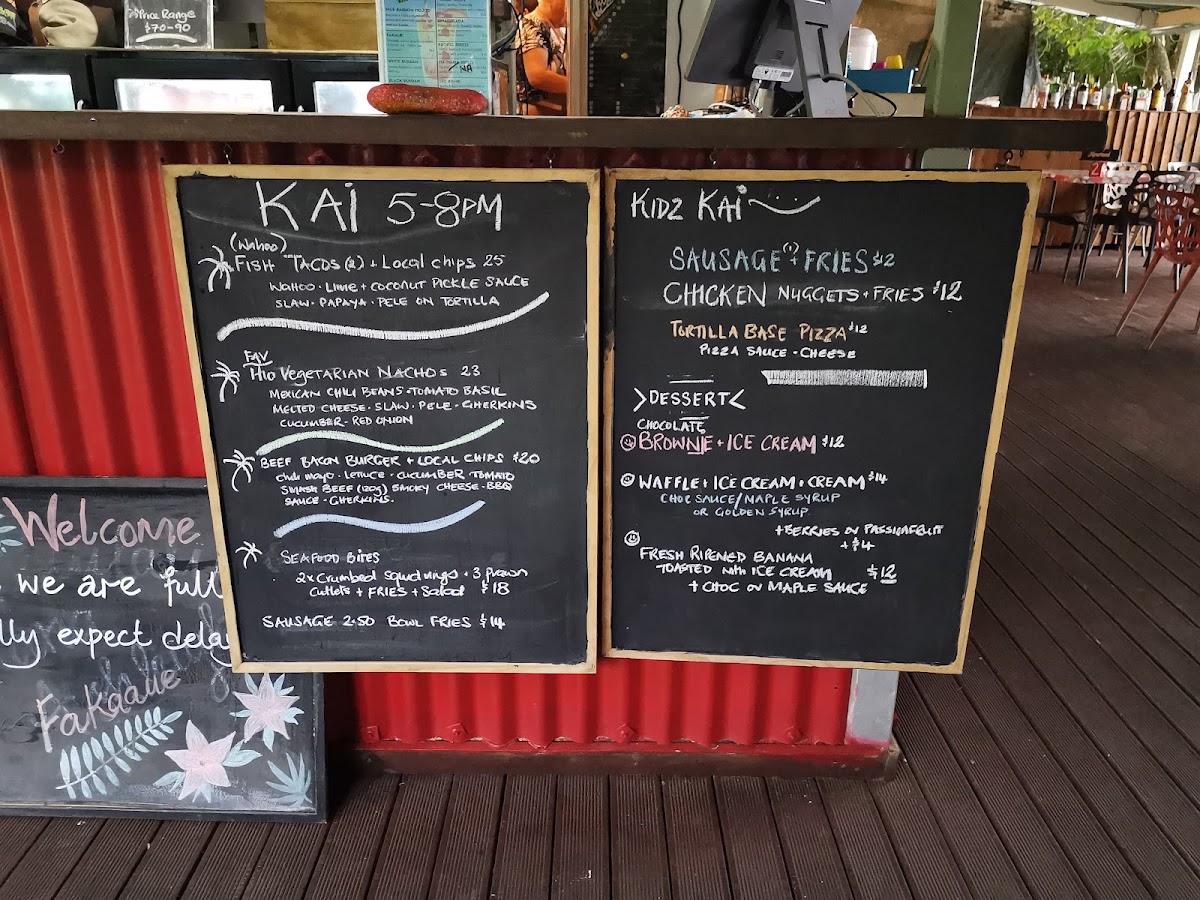 Price Range
$70-90
NA
KAI 5-8PM
(Wahoo)
FISH TACOS (2) + LOCAL CHIPS 25
WAHOO · LIME + COCONUT PICKLE SAUCE
SLAW · PAPAYA · PELE ON TORTILLA
FAV
HIO VEGETARIAN NACHOS 23
MEXICAN CHILI BEANS · TOMATO BASIL
MELTED CHEESE · SLAW · PELE · GHERKINS
CUCUMBER · RED ONION
BEEF BACON BURGER + LOCAL CHIPS $20
chili mayo · LETTUCE · CUCUMBER TOMATO
SMASH BEEF (120g) SMOKY CHEESE · BBQ
SAUCE · GHERKINS.
SEAFOOD BITES
2x Crumbed squid rings + 3 prawn
Cutlets + FRIES + Salad $18
SAUSAGE 2.50 BOWL FRIES $14
KIDZ KAI
SAUSAGE (1) + FRIES $12
CHICKEN NUGGETS + FRIES $12
TORTILLA BASE PIZZA $12
PIZZA SAUCE · CHEESE
>DESSERT<
CHOCOLATE
BROWNIE + ICE CREAM $12
WAFFLE + ICE CREAM + CREAM $14
CHOC SAUCE/MAPLE SYRUP
OR GOLDEN SYRUP
+ BERRIES or PASSIONFRUIT
+ $4
FRESH RIPENED BANANA
TOASTED with ICE CREAM $12
+ CHOC or MAPLE SAUCE
Welcome
we are full
lly expect delay
Fakaaue